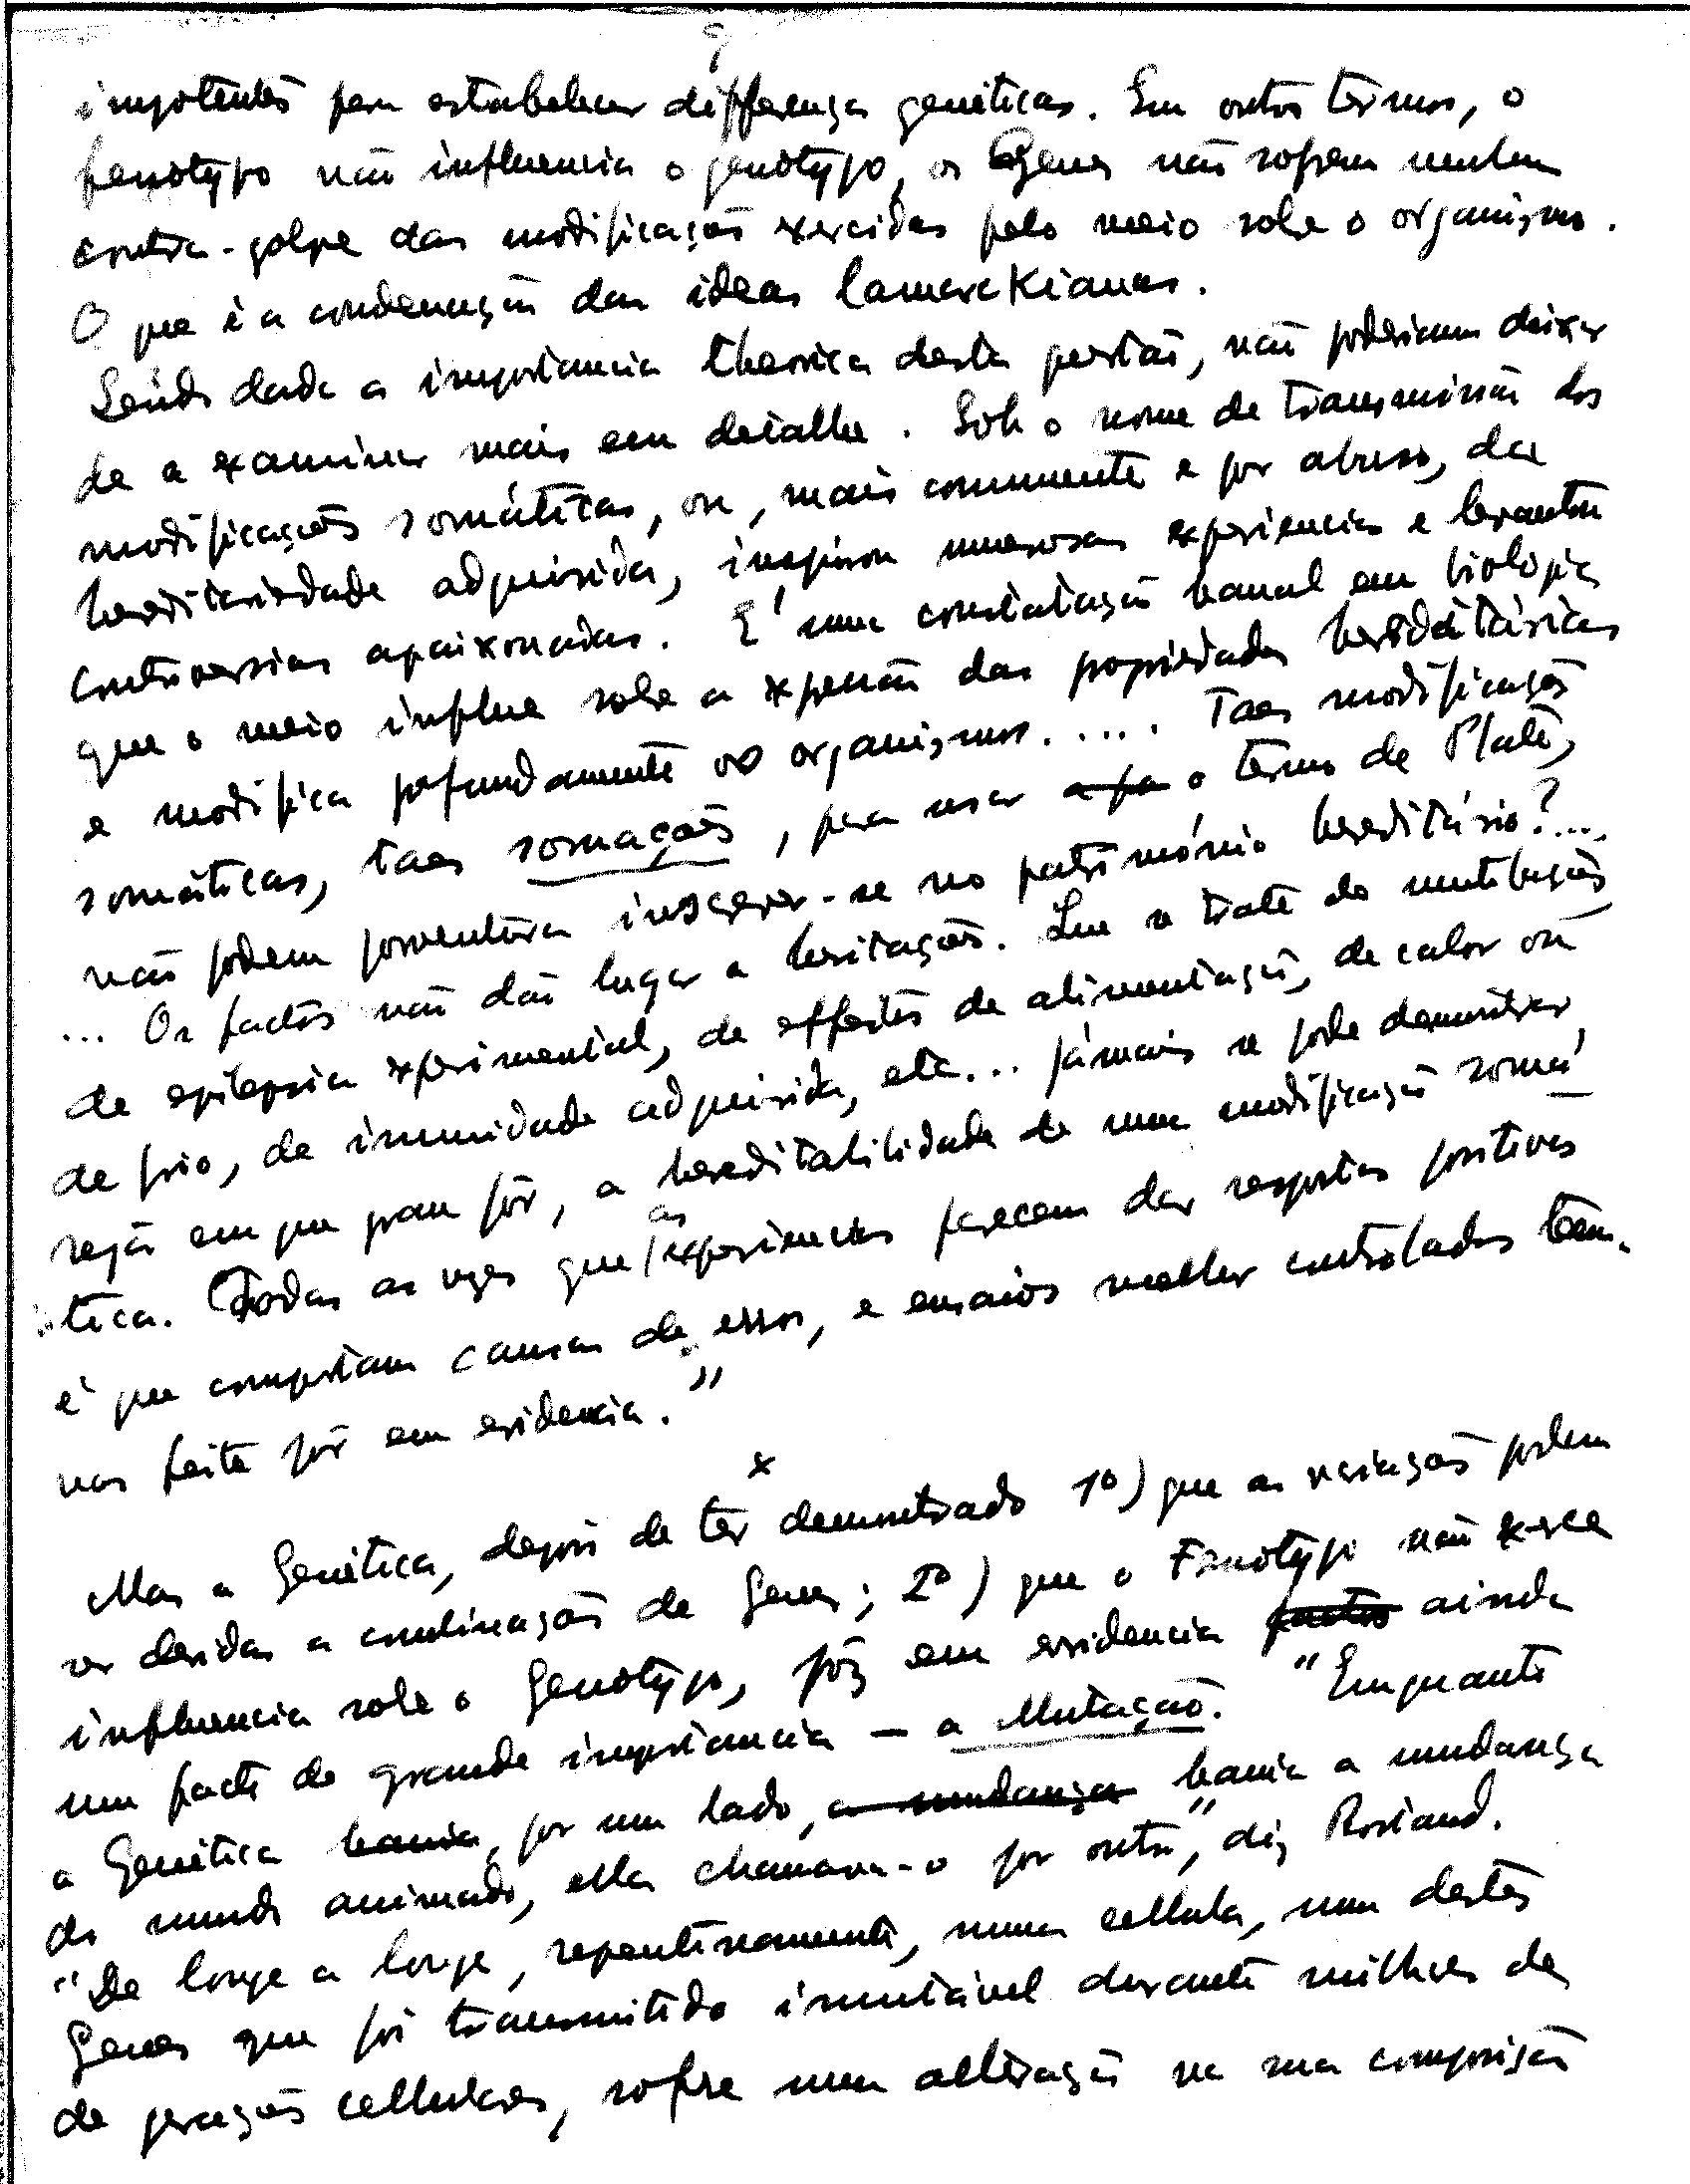 9
impotentes para estabelecer differenças genéticas. Em outros termos, o
fenotypo não influencia o genotypo, os Genes não soffrem nenhum
contra-golpe das modificações exercidas pelo meio sobre o organismo.
O que é a condemnação das ideas lamarckianas.
Sendo dada a importancia theorica desta questão, não poderiamos deixar
de a examinar mais em detalhe. Sob o nome de transmissão dos
modificações somáticas, ou, mais communente e por abuso, da
hereditariedade adquirida, inspirou numerosas experiencias e levantou
controversias apaixonadas. É uma constatação banal em biologia
que o meio influe sobre a expressão das propriedades hereditárias
e modifica profundamente os organismos..... Taes modificações
somáticas, taes somações, para usar a pa o termo de Plate,
não podem porventura inscrever-se no património hereditário?....
... Os factos não dão lugar a hesitações. Que se trate de mutilações
de epilepsia experimental, de effeitos de alimentação, de calor ou
de frio, de immunidade adquirida, etc... jámais se pode demonstrar,
seja em que grau fôr, a hereditabilidade de uma modificação somá
tica. (Todas as vezes que as experiencias parecem dar respostas positivas
é que comportam causas de error, e ensaios melhor controlados têm-
nos feito pôr em evidencia."
x
Mas a Genética, depois de ter demonstrado 1º) que as variações podem
ser devidas a combinações de Genes; 2º) que o Fenotypo não exerce
influencia sobre o Genotypo, pôz em evidencia factos ainda
um facto de grande importancia – a Mutação. "Emquanto
a Genética bania, por um lado, a mudança bania a mudança
do mundo animado, ella chamava-o por outro", diz Rostand.
"De longe a longe, repentinamente, numa cellula, um destes
Genes que foi transmitido immutável durante milhares de
de gerações cellulares, soffre uma alteração na sua composição